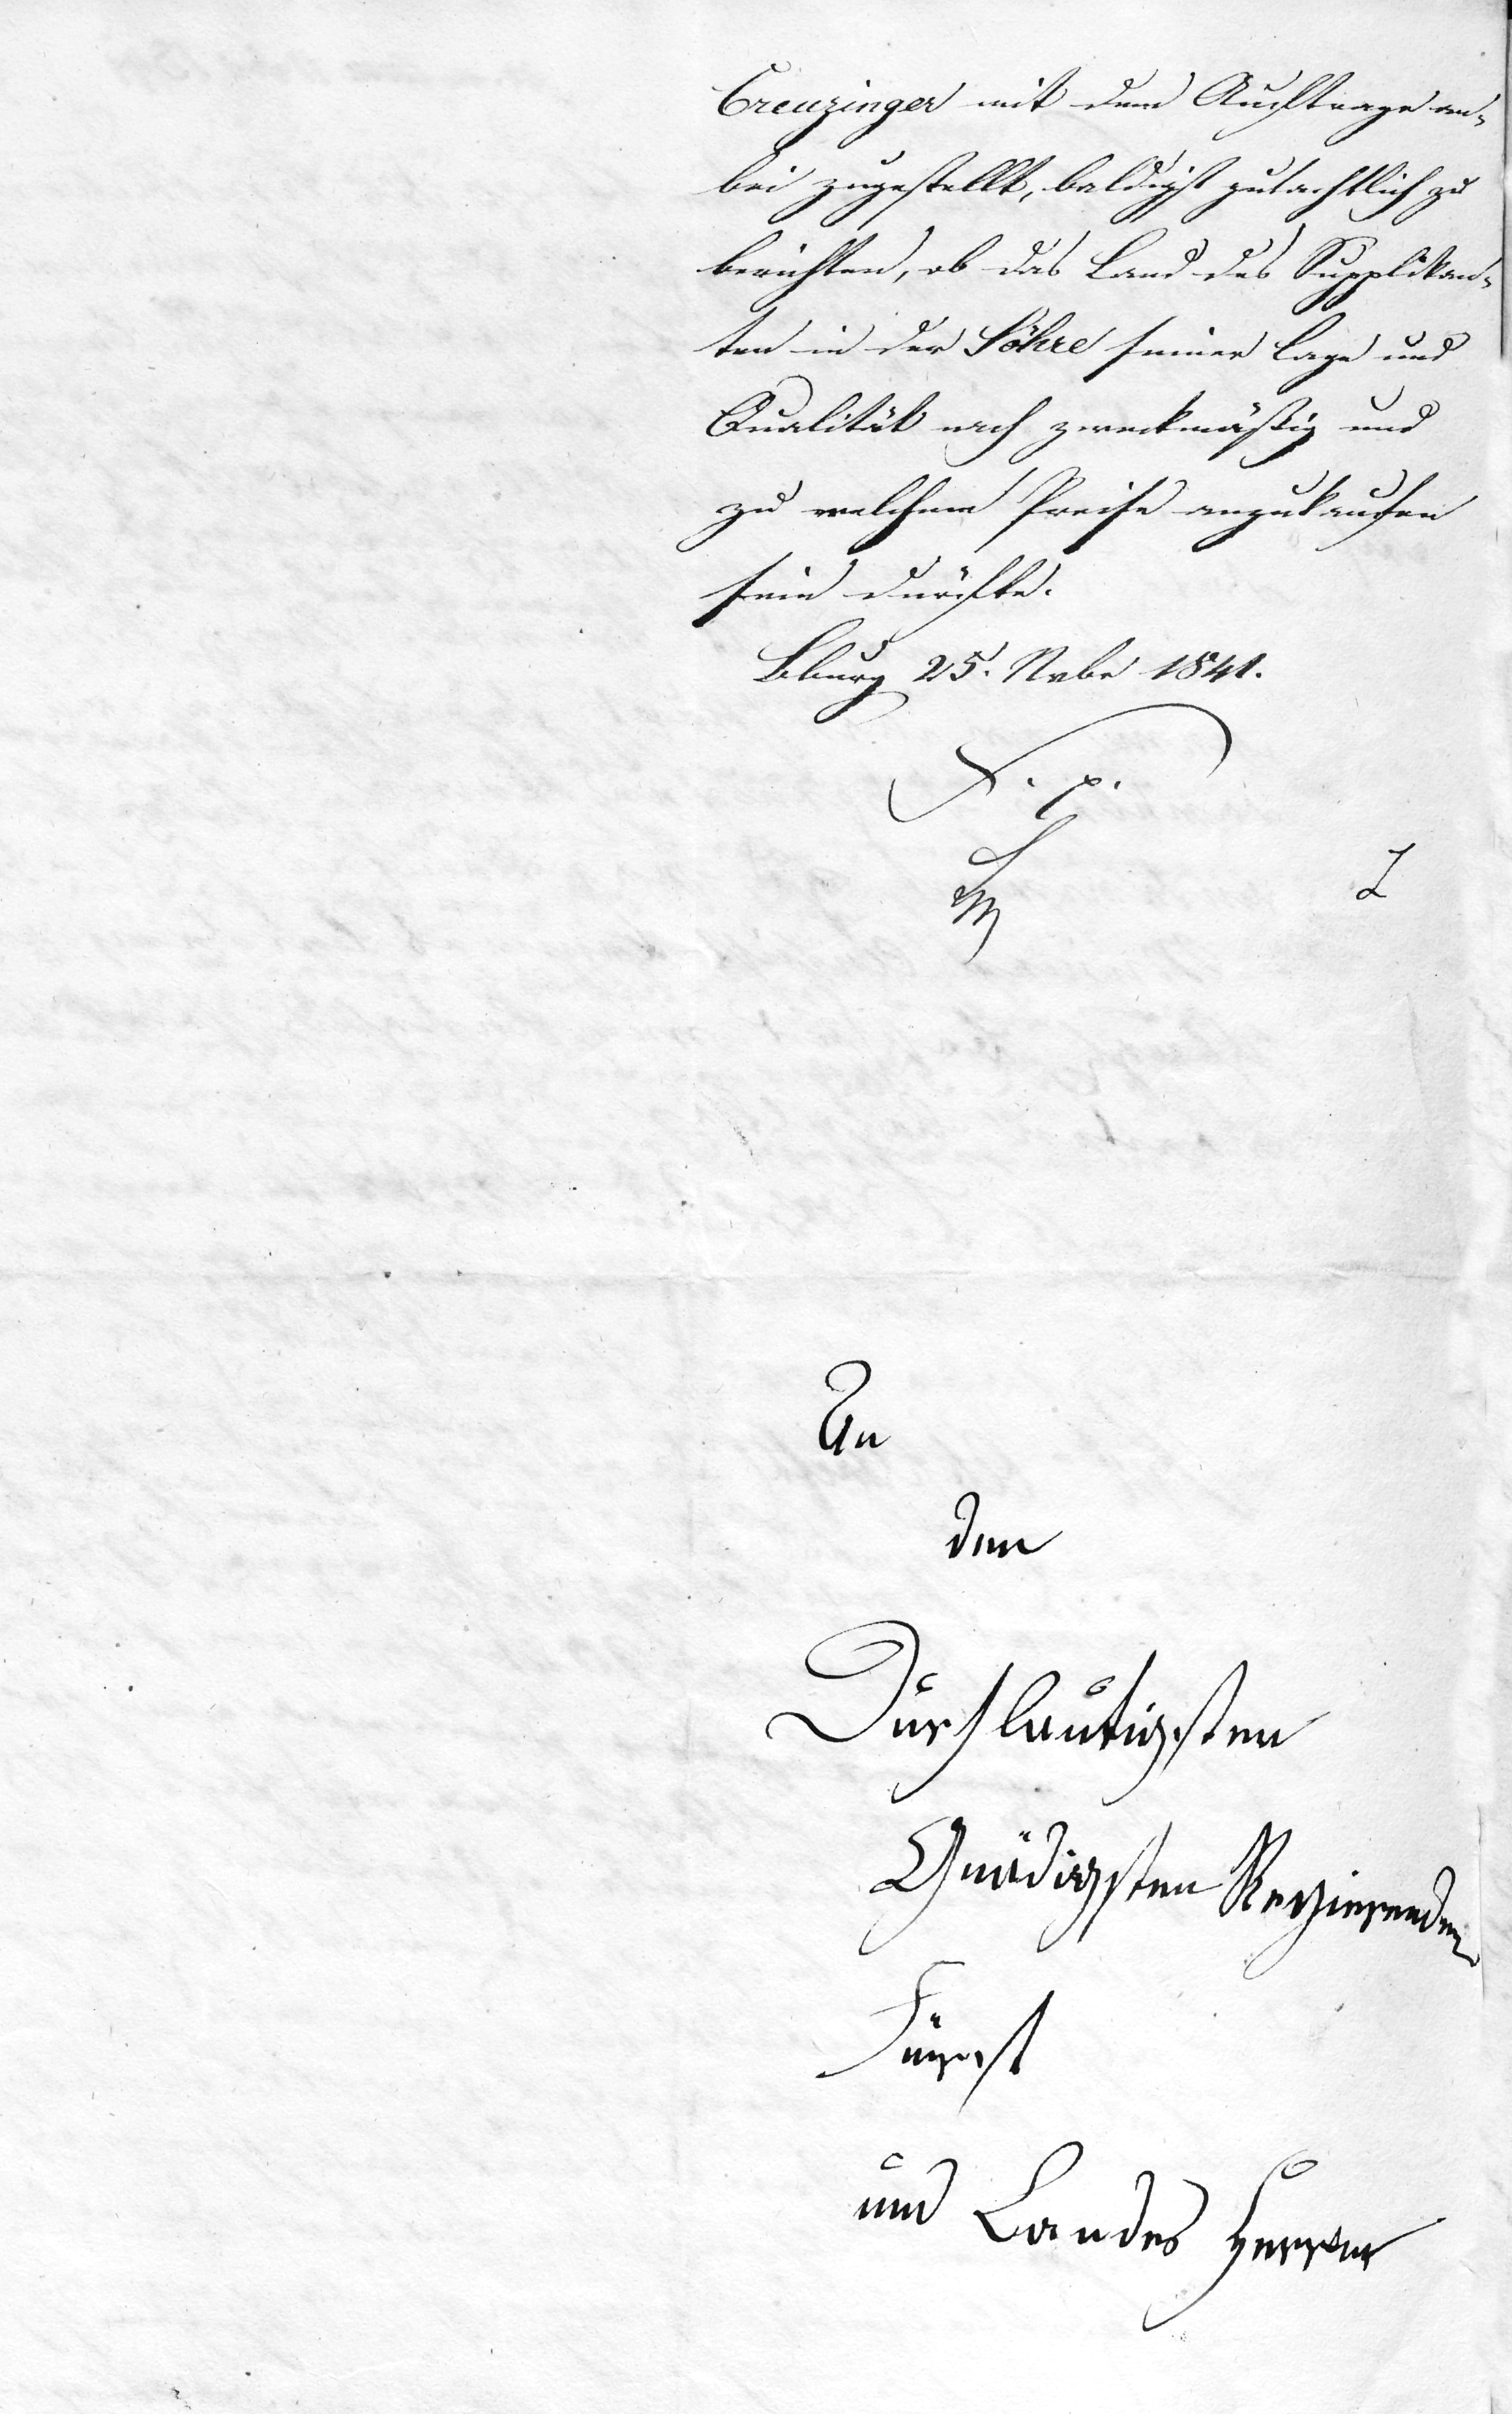 Creuzinger mit dem Auftrage an-
bei zugestellt, baldigst gutachtlich zu
berichten, ob das Land des Supplikan-
ten in der Söhre seiner Lage und
Qualität nach zweckmäßig und
zu welchem Preise anzukaufen
sein dürfte.
Bburg 25. Nvbr 1841.
F. p.
An
den
Durchlautigsten
Gnädigsten Regierenden
Fürst
und Landes Herren